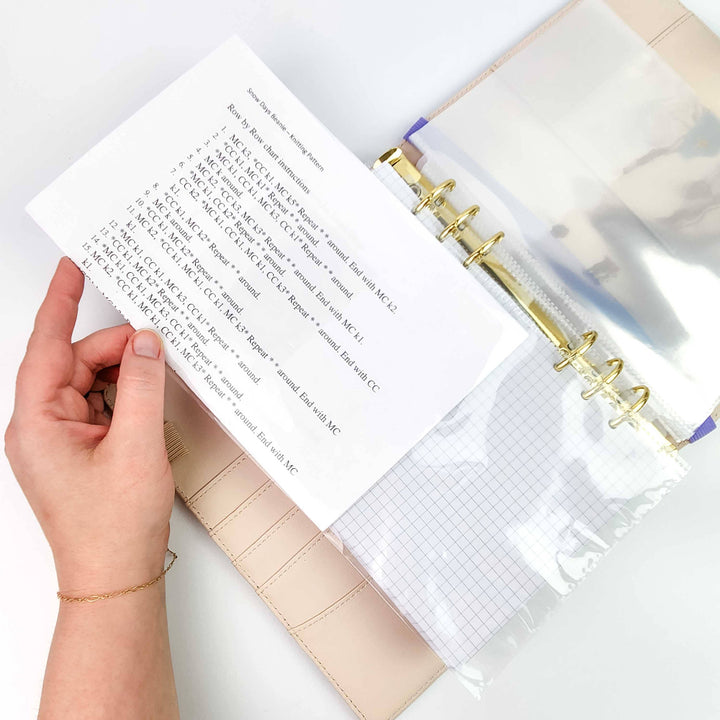 Snow Days Beanie – Knitting Pattern
Row by Row chart instructions
1. MC k3, *CC k1, MC k3* Repeat * * around. End with MC k2.
2. *CC k1, MC k1* Repeat * * around.
3. *MC k1, CC k1, MC k3, CC k1* Repeat * * around.
4. MC k2, *CC k3, MC k3* Repeat * * around. End with MC k1.
5. *MC k1, CC k2* Repeat * * around.
6. MC k around.
7. CC k1, *MC k1, CC k1, MC k1, CC k3* Repeat * * around. End with CC
k1.
8. *CC k1, MC k2* Repeat * * around.
9. MC k around.
10. MC k2, *CC k1, MC k1, CC k1, MC k3* Repeat * * around. End with MC
k1.
11. *CC k1, MC k2* Repeat * * around.
12. *MC k1, CC k1, MC k3, CC k1* Repeat * * around.
13. *CC k1, MC k2* Repeat * * around.
14. *MC k1, CC k1, MC k3, CC k1* Repeat * * around.
15. MC k2, *CC k1, MC k1, CC k1, MC k3* Repeat * * around. End with MC